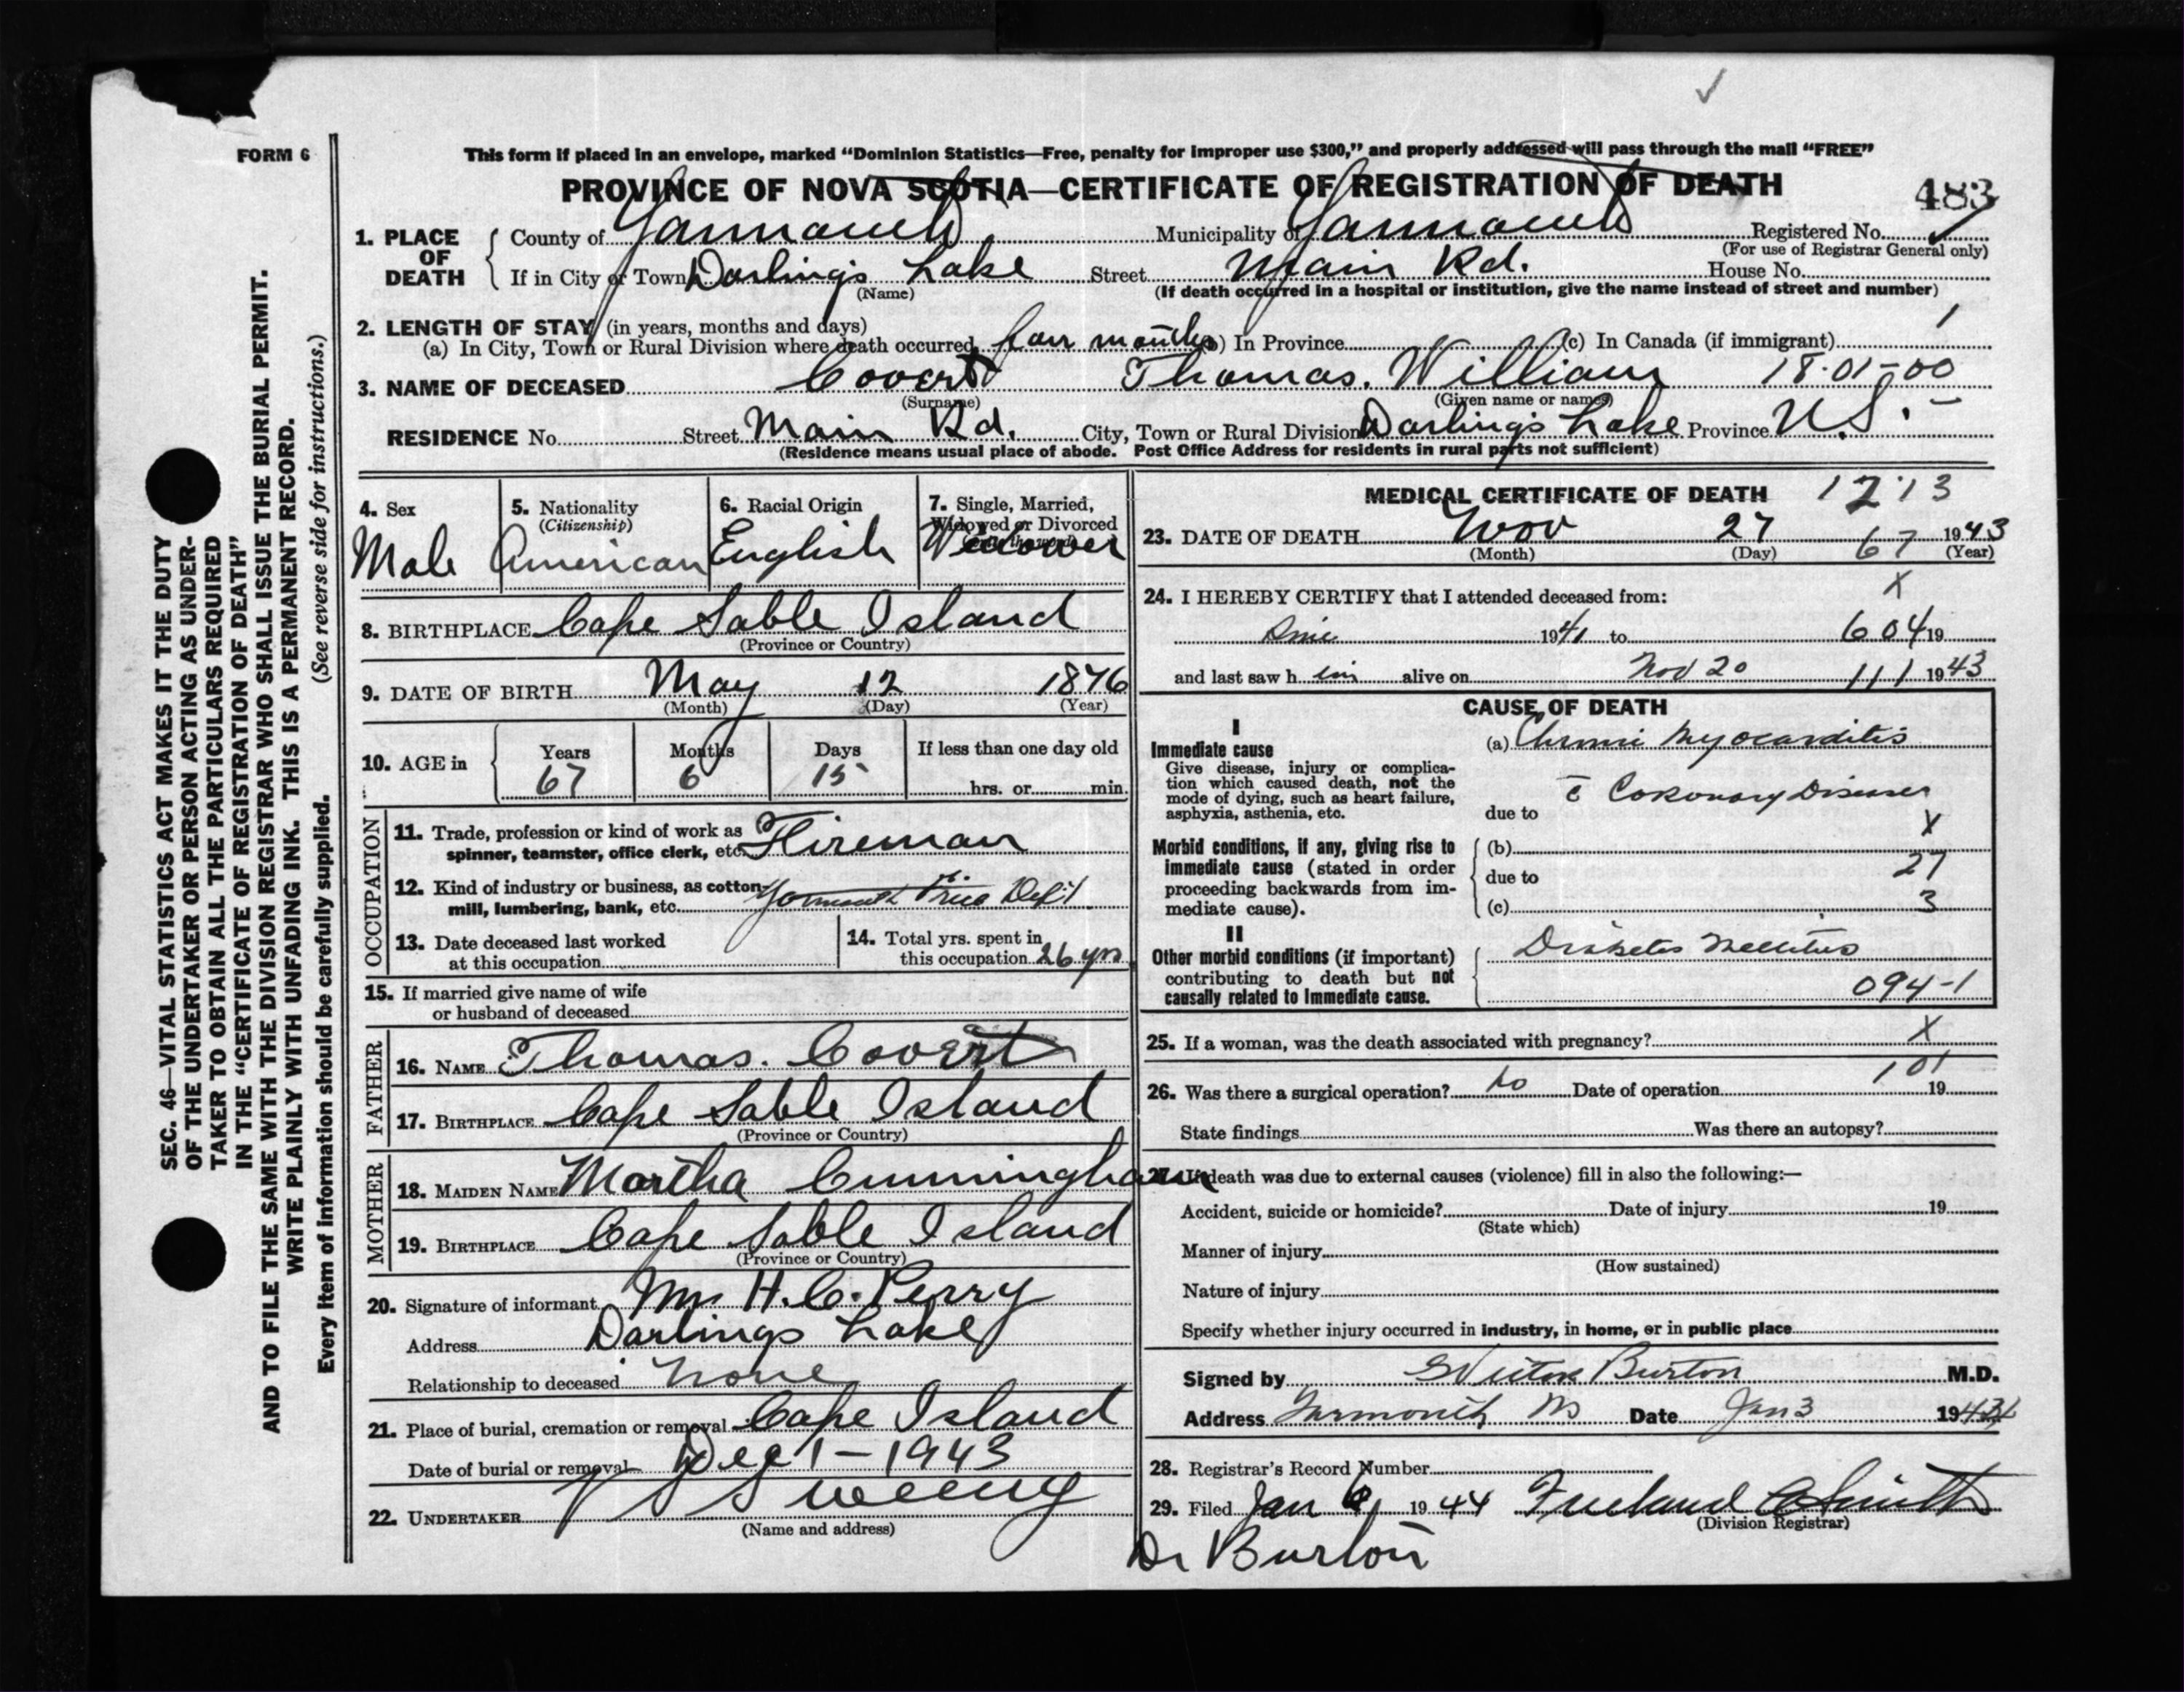 FORM 6
This form if placed in an envelope, marked “Dominion Statistics—Free, penalty for improper use $300,” and properly addressed will pass through the mail “FREE”
PROVINCE OF NOVA SCOTIA—CERTIFICATE OF REGISTRATION OF DEATH
483
1. PLACE OF DEATH
County of Yarmouth Municipality of Yarmouth Registered No.
(For use of Registrar General only)
If in City or Town Darlings Lake Street Main Rd. House No.
(Name) (If death occurred in a hospital or institution, give the name instead of street and number)
2. LENGTH OF STAY (in years, months and days)
(a) In City, Town or Rural Division where death occurred four months (b) In Province (c) In Canada (if immigrant)
3. NAME OF DECEASED Covert Thomas. William 18-01-00
(Surname) (Given name or names)
RESIDENCE No. Street Main Rd. City, Town or Rural Division Darlings Lake Province N.S.
(Residence means usual place of abode. Post Office Address for residents in rural parts not sufficient)
4. Sex Male
5. Nationality (Citizenship) American
6. Racial Origin English
7. Single, Married, Widowed or Divorced Widower
8. BIRTHPLACE Cape Sable Island
(Province or Country)
9. DATE OF BIRTH May 12 1876
(Month) (Day) (Year)
10. AGE in Years Months Days If less than one day old
67 6 15 hrs. or min.
OCCUPATION
11. Trade, profession or kind of work as
spinner, teamster, office clerk, etc. Fireman
12. Kind of industry or business, as cotton
mill, lumbering, bank, etc. Yarmouth Fire Dept.
13. Date deceased last worked
at this occupation
14. Total yrs. spent in
this occupation 26 yrs
15. If married give name of wife
or husband of deceased
FATHER
16. NAME Thomas. Covert
17. BIRTHPLACE Cape Sable Island
(Province or Country)
MOTHER
18. MAIDEN NAME Martha Cunningham
19. BIRTHPLACE Cape Sable Island
(Province or Country)
20. Signature of informant Mrs H. C. Perry
Address Darlings Lake
Relationship to deceased none
21. Place of burial, cremation or removal Cape Island
Date of burial or removal Dec 1-1943
22. UNDERTAKER V S Sweeny
(Name and address)
MEDICAL CERTIFICATE OF DEATH 1213
23. DATE OF DEATH Nov 27 67 1943
(Month) (Day) (Year)
24. I HEREBY CERTIFY that I attended deceased from: X
1941 to 604 19
and last saw h im alive on Nov 20 111 1943
CAUSE OF DEATH
I
Immediate cause
Give disease, injury or complica-
tion which caused death, not the
mode of dying, such as heart failure,
asphyxia, asthenia, etc.
(a) Chronic Myocarditis
c̄ Coronary Disease
due to
X
Morbid conditions, if any, giving rise to
immediate cause (stated in order
proceeding backwards from im-
mediate cause).
(b)
due to 27
(c) 3
II
Other morbid conditions (if important)
contributing to death but not
causally related to immediate cause.
Diabetes Mellitus
094-1
25. If a woman, was the death associated with pregnancy? X
26. Was there a surgical operation? No Date of operation 101 19
State findings Was there an autopsy?
27. If death was due to external causes (violence) fill in also the following:—
Accident, suicide or homicide? Date of injury 19
(State which)
Manner of injury
(How sustained)
Nature of injury
Specify whether injury occurred in industry, in home, or in public place
Signed by Burton M.D.
Address Yarmouth NS Date Jan 3 194
28. Registrar's Record Number
29. Filed Jan 1944 Freeland Smith
(Division Registrar)
Dr Burton
SEC. 46—VITAL STATISTICS ACT MAKES IT THE DUTY
OF THE UNDERTAKER OR PERSON ACTING AS UNDER-
TAKER TO OBTAIN ALL THE PARTICULARS REQUIRED
IN THE “CERTIFICATE OF REGISTRATION OF DEATH”
AND TO FILE THE SAME WITH THE DIVISION REGISTRAR WHO SHALL ISSUE THE BURIAL PERMIT.
WRITE PLAINLY WITH UNFADING INK. THIS IS A PERMANENT RECORD.
Every item of information should be carefully supplied. (See reverse side for instructions.)